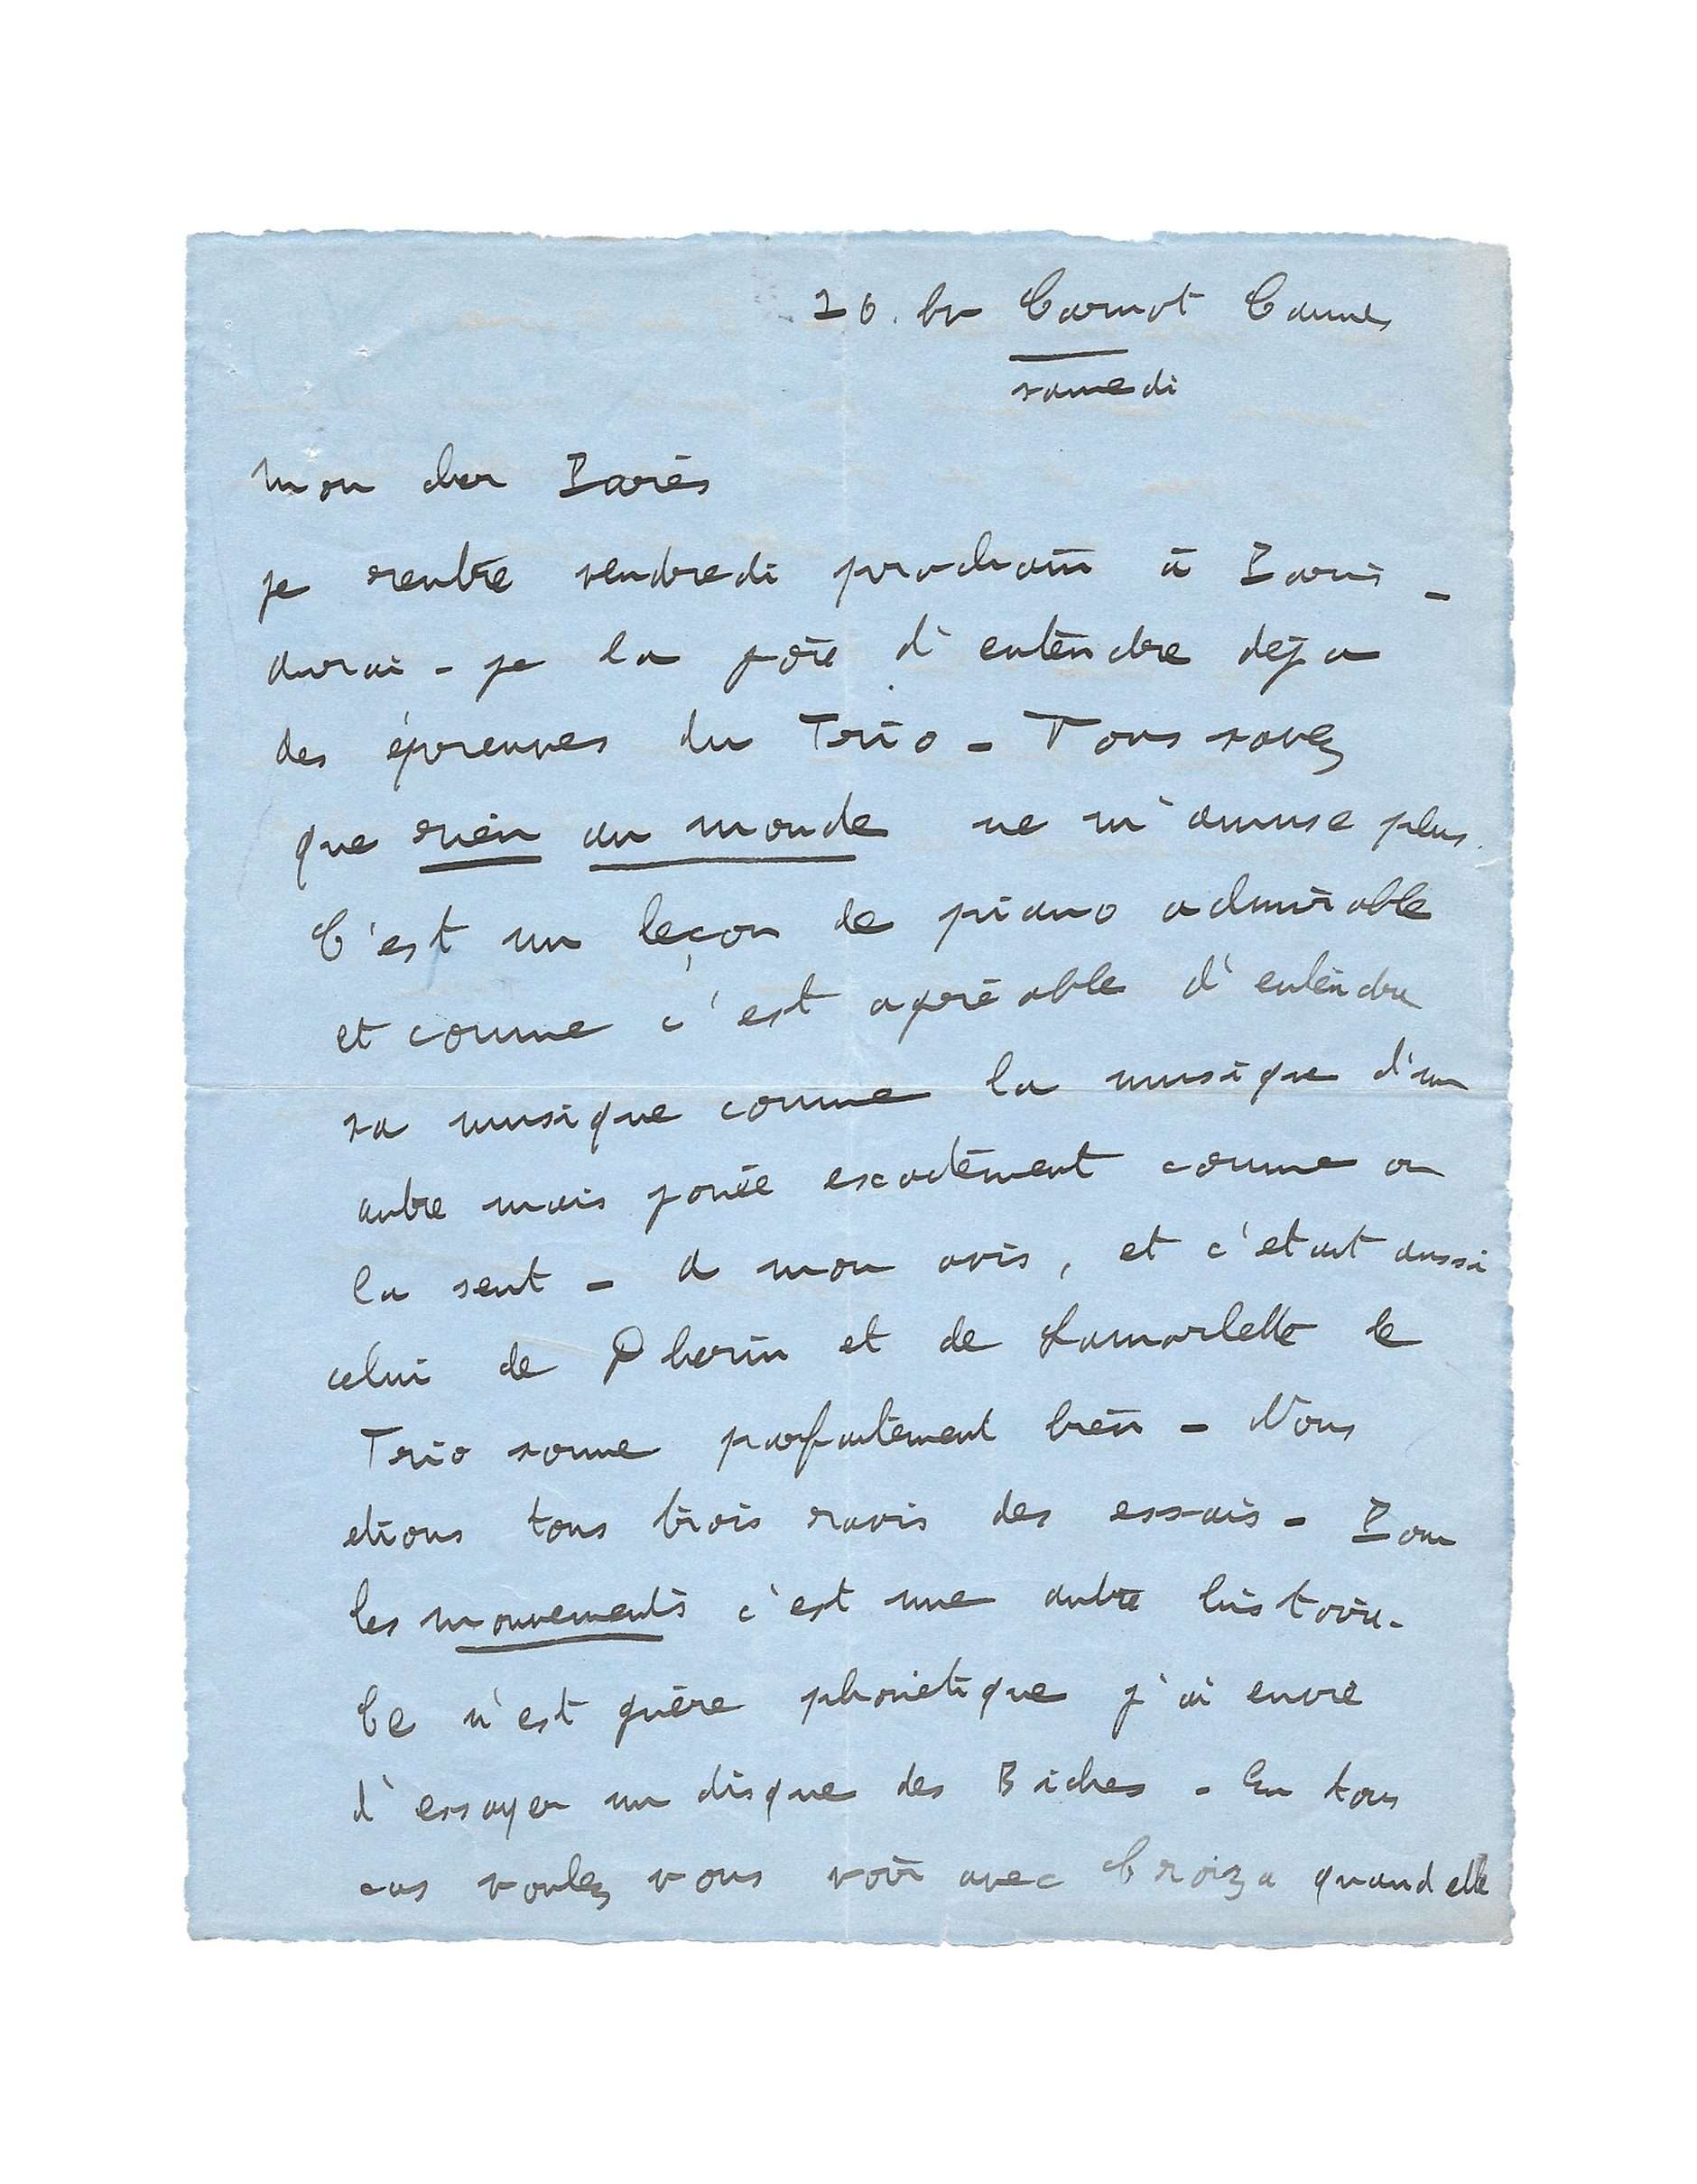 26. bd Carnot Cannes
samedi
Mon cher Parès
je rentre vendredi prochain à Paris -
aurai-je la joie d'entendre déja
des épreuves du Trio - Vous savez
que rien au monde ne m'amuse plus.
C'est un leçon de piano admirable
et comme c'est agréable d'entendre
sa musique comme la musique d'un
autre mais jouée exactement comme on
la sent - A mon avis, et c'etait aussi
celui de Pherin et de Lamorlette le
Trio sonne parfaitement bien - Nous
etions tous trois ravis des essais - Pour
les mouvements c'est une autre histoire.
Ce n'est guère phonetique j'ai envie
d'essayer un disque des Biches - En tous
cas voulez vous voir avec Croiza quand elle